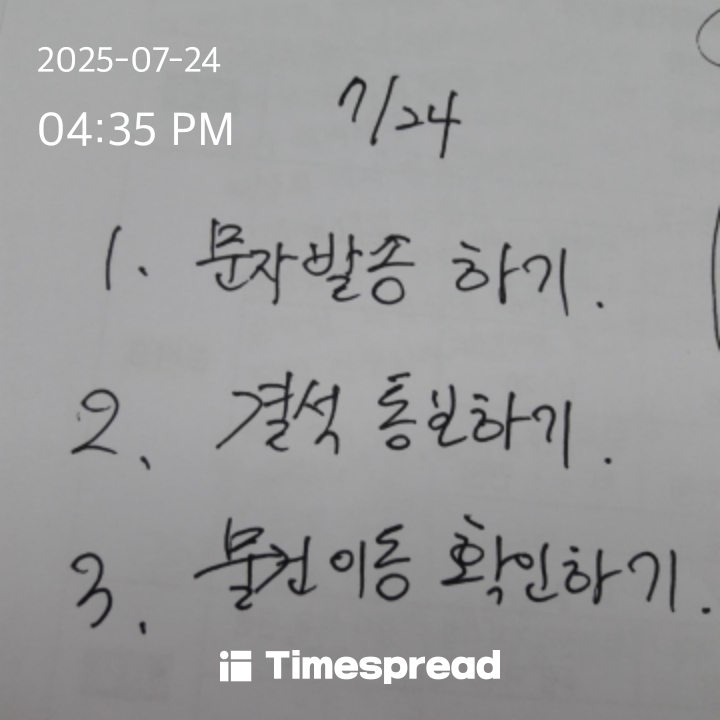 2025-07-24
04:35 PM
7/24
1. 문자발송 하기.
2. 결석 통보하기.
3. 물건이동 확인하기.
Timespread